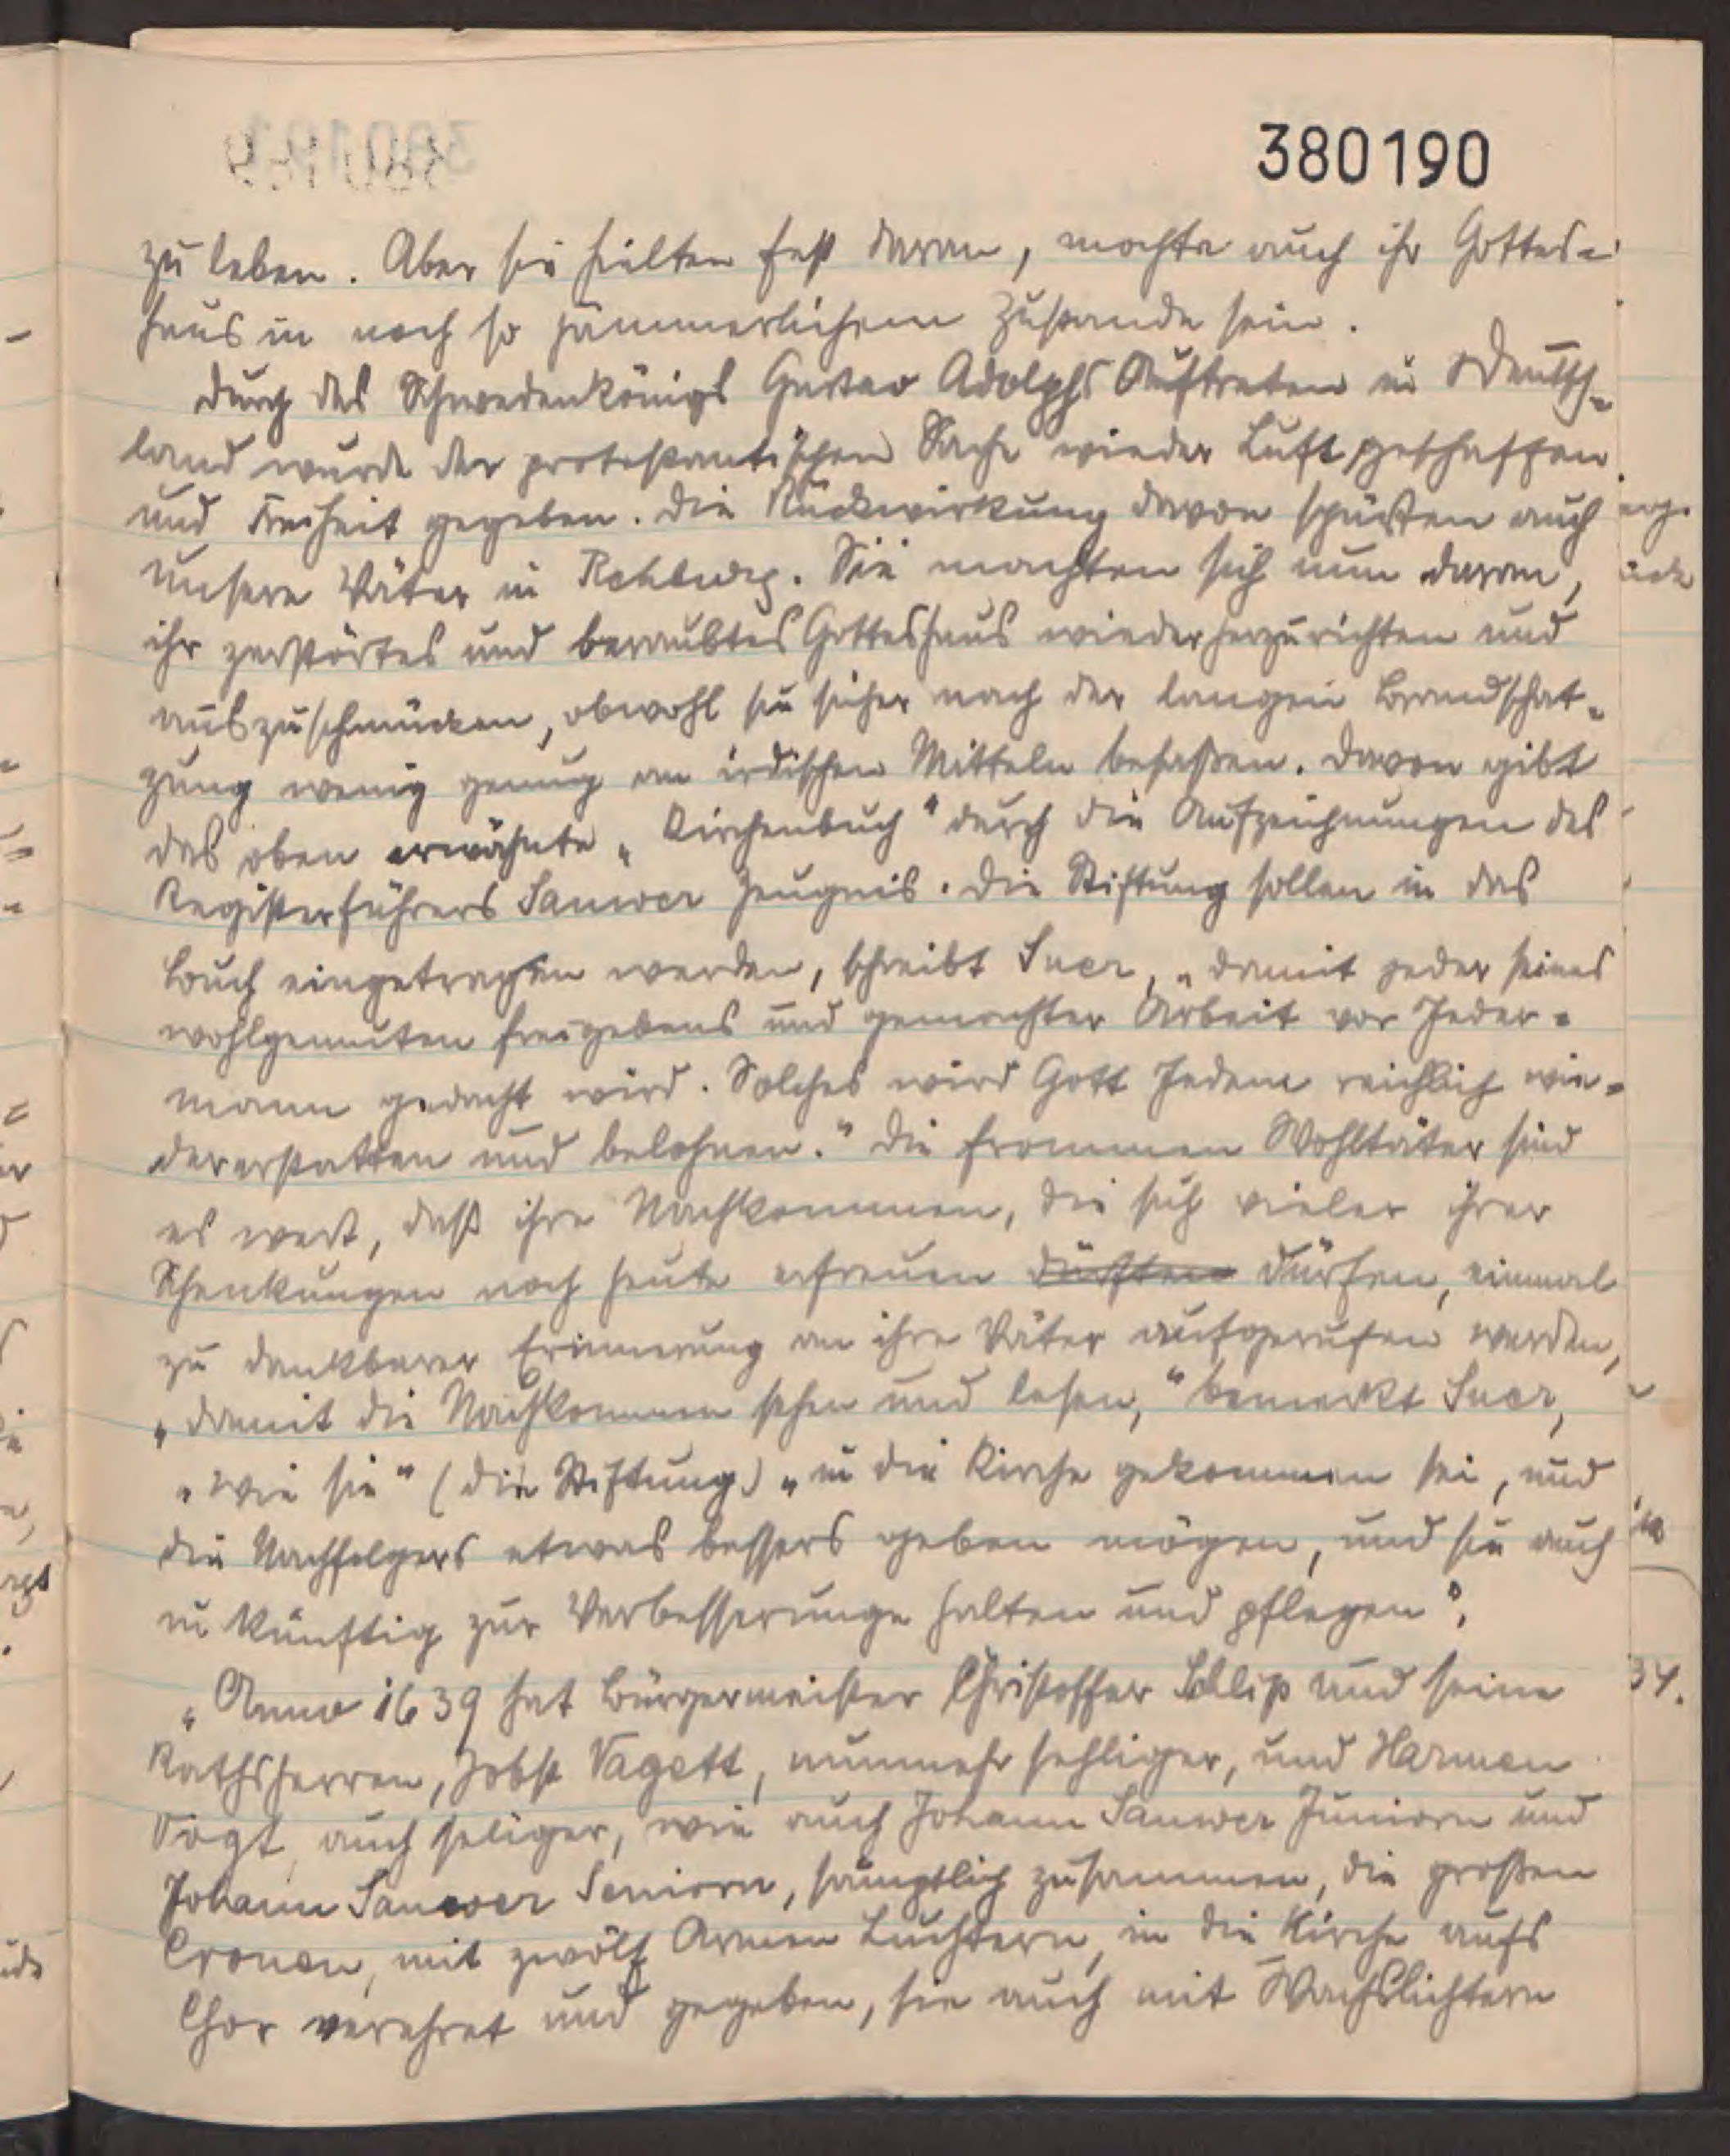 380190
zu leben. Aber sie hielten fest daran, mochte auch ihr Gottes-
haus in noch so jämmerlichem Zustande sein.
Durch des Schwedenkönigs Gustav Adolphs Auftreten in Deutsch-
land wurde der protestantischen Sache wieder Luft geschaffen
und Freiheit gegeben. Die Rückwirkung davon spürten auch
unsere Väter in Rehburg. Sie machten sich nun daran,
ihr zerstörtes und beraubtes Gotteshaus wiederherzurichten und
auszuschmücken, obwohl sie sicher nach der langen Brandschat-
zung wenig genug an irdischen Mitteln besaßen. Davon gibt
das oben erwähnte „Kirchenbuch“ durch die Aufzeichnungen des
Registerführers Sauwer Zeugnis. Die Stiftung sollen in das
Buch eingetragen werden, schreibt Suer, „damit jeder seines
wohlgemuten freigebens und gemachter Arbeit vor Jeder-
mann gedacht wird. Solches wird Gott Jedem reichlich wie-
dererstatten und belohnen.“ Die frommen Wohltäter sind
es wert, daß ihre Nachkommen, die sich vieler ihrer
Schenkungen noch heute erfreuen dürften dürfen, einmal
zu dankbarer Erinnerung an ihre Väter aufgerufen werden,
„damit die Nachkommen sehen und lesen,“ bemerkt Suer,
„wie sie“ (die Stiftung) „in die Kirche gekommen sei, und
die Nachfolgers etwas bessers geben mögen, und sie auch
in künftig zur Verbesserunge halten und pflegen“.
„Anno 1639 hat Bürgermeister Christoffer Schlip und seine
Rathsherren, Jobst Vagett, nunmehr sehliger, und Harmen
Vogt, auch seliger, wie auch Johann Sauwer Juniorn und
Johann Sauwer Seniorn, sämptlich zusammen, die großen
Cronen, mit zwölf Armen Luchtern, in die Kirche aufs
Chor verehret und gegeben, sie auch mit Wachslichtern